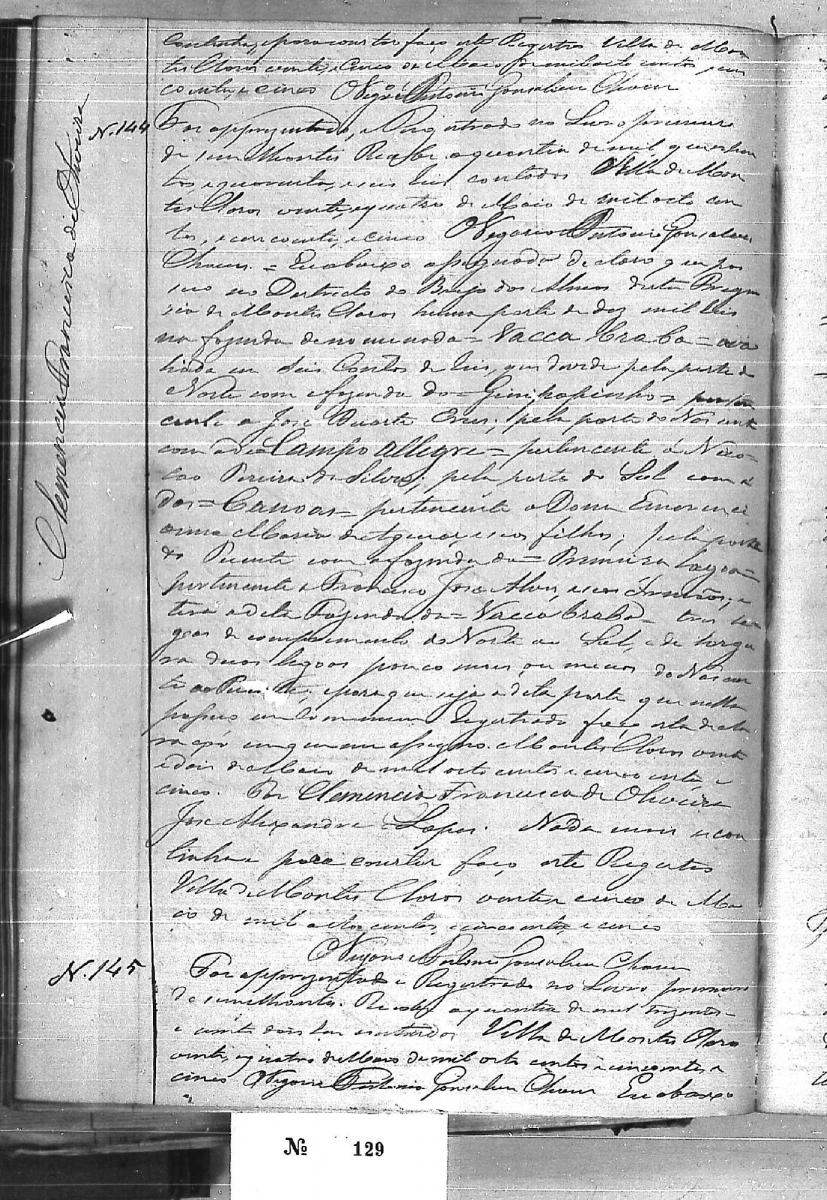 continha, e para constar faço este Registro Villa de Mon
tes Claros vinte e cinco de Maio de mil oito centos, e cin
coenta, e cinco O Vigario Antonio Gonsalves Chaves
N. 144
Foi apprezentado, e Registrado no Livro primeiro
de semelhantes Recebe a quantia de mil quinhen
tos e quarenta e seis reis contados Villa de Mon
tes Claros vinte, e quatro de Maio de mil oito cen
tos, e cincoenta, e cinco O Vigario Antonio Gonsalves
Chaves. = Eu abaixo assignada declaro que pos
suo no Districto do Brejo das Almas desta Fregue
zia de Montes Claros huma parte de dez mil reis
na fazenda denominada = Vacca Braba = ava
liada em seis Contos de reis, que divide pela parte do
Norte com a fazenda do = Genipapinho = perten
cente a José Duarte; pela parte do Nascente
com a do = Campo Allegre = pertencente á
Pereira da Silva; pela parte do Sul com a
das = Canoas = pertencente a Dona Emerenci
anna Maria de Aguiar, e seos filhos; pela parte
do Poente com a fazenda da = Primeira Lagoa =
pertencente a Francisco José Alves, e seos Irmãos; e
terá a dita Fazenda da = Vacca Braba = tres le
goas de comprimento do Norte ao Sul, e de largu
ra duas legoas pouco mais, ou menos do Nascen
te ao Poente; e para que seja a dita parte que nella
possuo em commum Registrada faço esta decla
ração em que me assigno. Montes Claros vinte
e dois de Maio de mil oito centos e cincoenta e
cinco. Por Clemencia Francisca de Oliveira
José Alexandre Lopes. Nada mais se con
tinha e para constar faço, este Registro
Villa de Montes Claros vinte e cinco de Ma
io de mil oito centos, e cincoenta e cinco
O Vigario Antonio Gonsalves Chaves
N. 145
Foi apprezentado e Registrado no Livro primeiro
de semelhantes. Recebe a quantia de mil trezentos
e vinte dois reis contados Villa de Montes Claros
vinte, e quatro de Maio de mil oito centos e cincoenta e
cinco O Vigario Antonio Gonsalves Chaves Eu abaixo
Clemencia Francisca de Oliveira
Nº 129